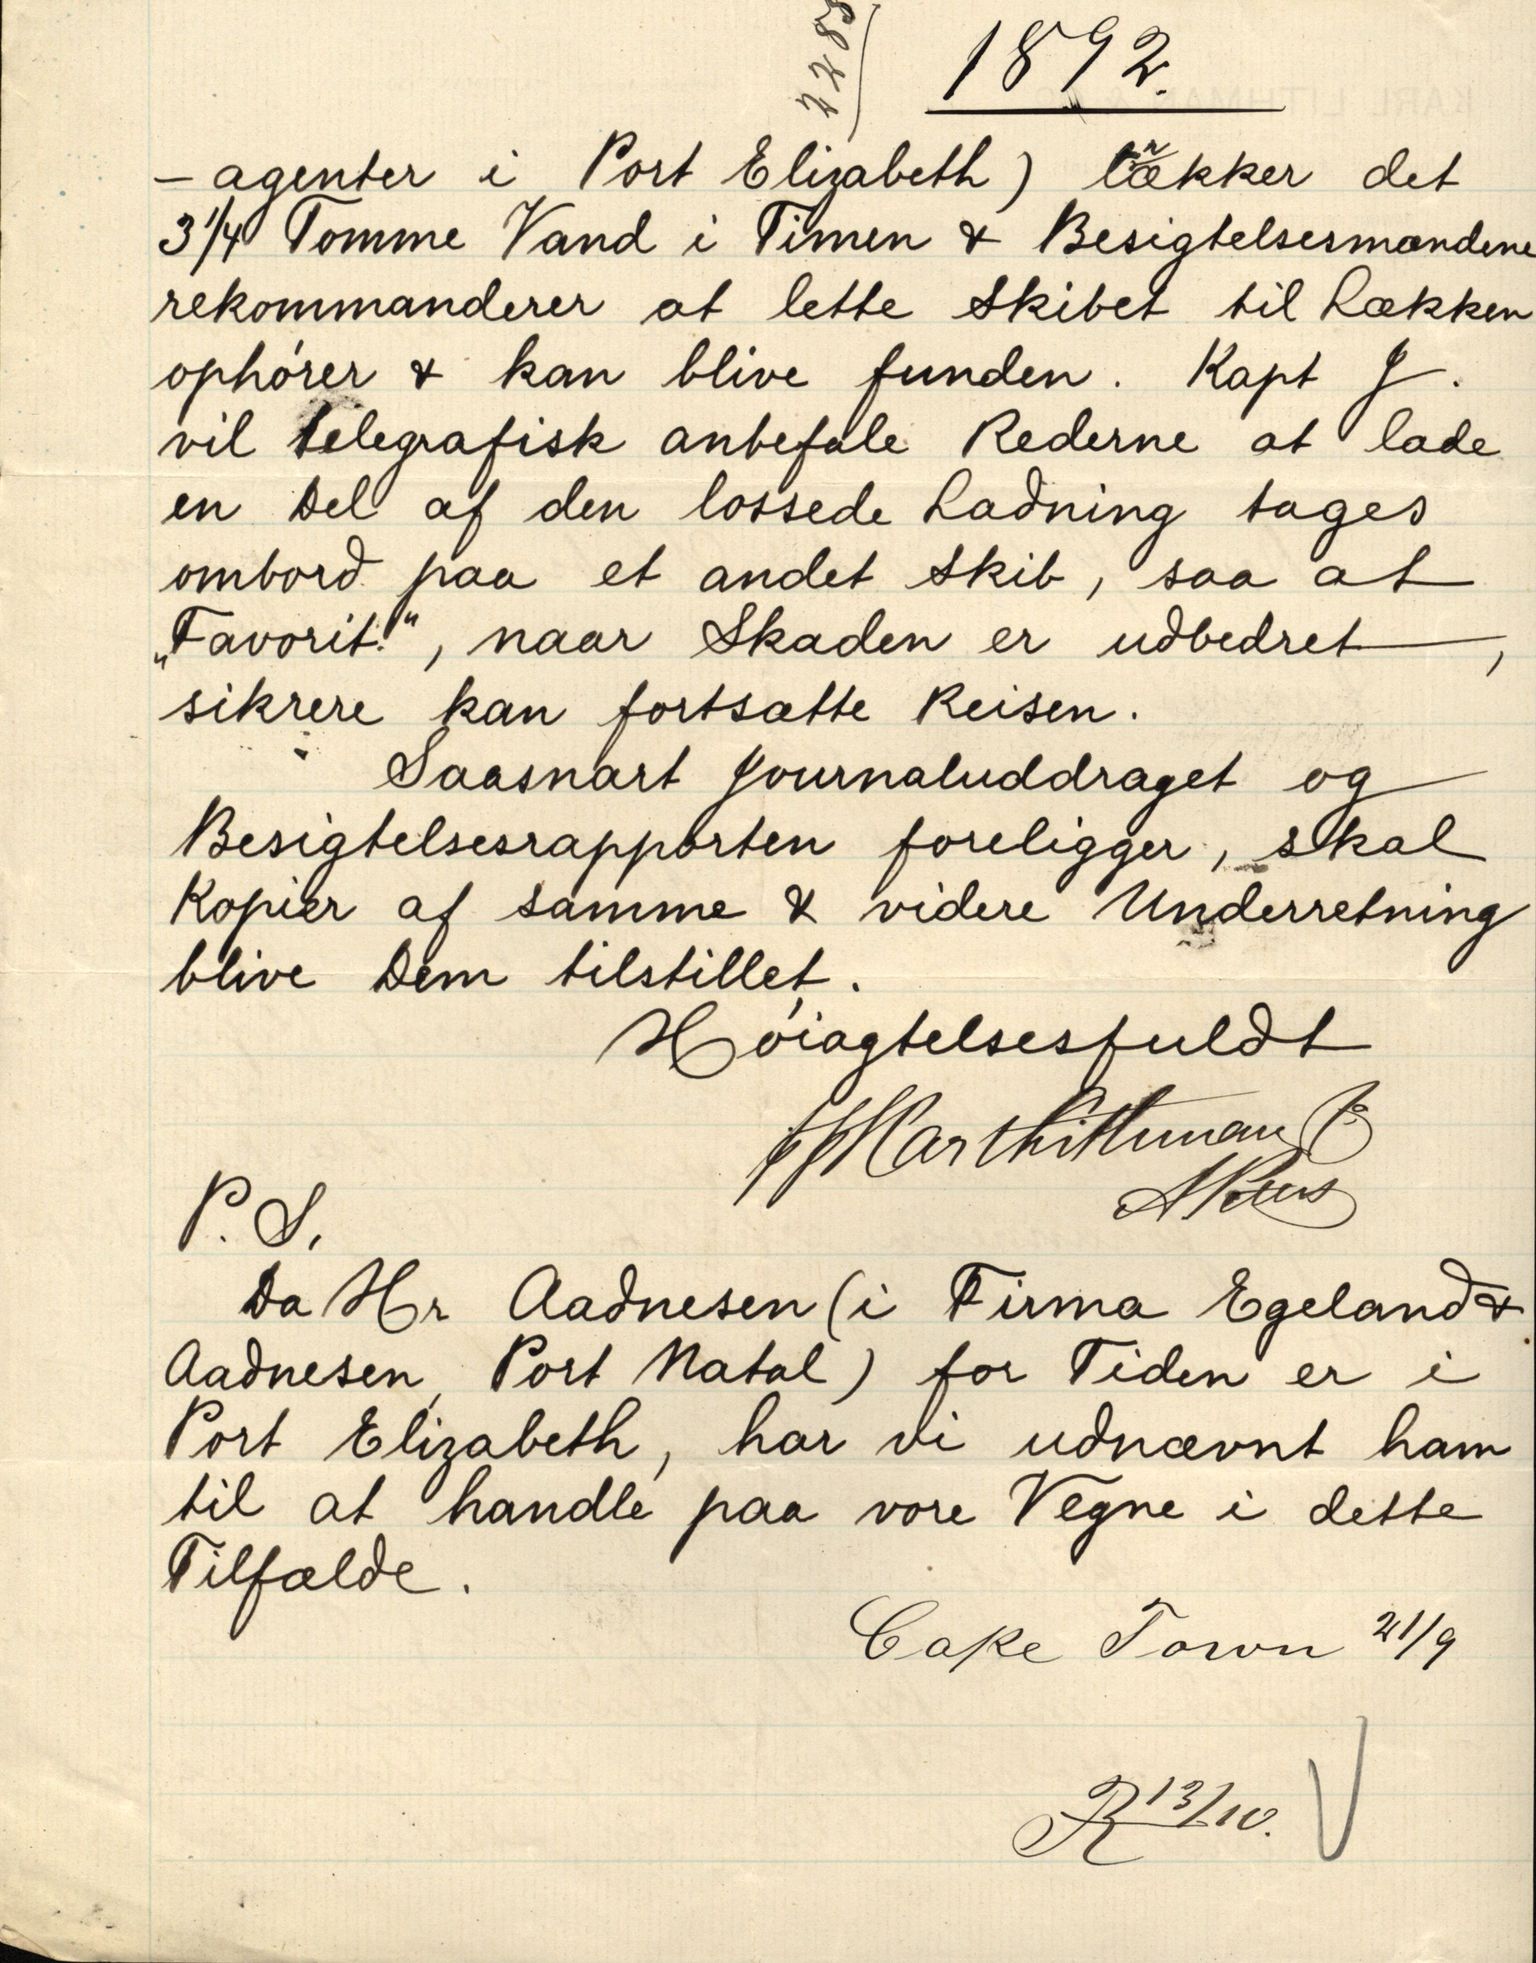 2283)
1892.
– agenter i Port Elizabeth) lækker det
3 1/4 Tomme Vand i Timen & Besigtelsesmændene
rekommanderer at lette Skibet til Lækken
ophører & kan blive funden. Kapt J.
vil telegrafisk anbefale Rederne at lade
en Del af den lossede Ladning tages
ombord paa et andet Skib, saa at
„Favorit“, naar Skaden er udbedret,
sikrere kan fortsætte Reisen.
Saasnart Journaluddraget og
Besigtelsesrapporten foreligger, skal
Kopier af samme & videre Underretning
blive Dem tilstillet.
Høiagtelsesfuldt
P. S.
Da Hr Aadnesen (i Firma Egeland &
Aadnesen, Port Natal) for Tiden er i
Port Elizabeth, har vi udnævnt ham
til at handle paa vore Vegne i dette
Tilfælde.
Cape Town 21/9
R 13/10. V